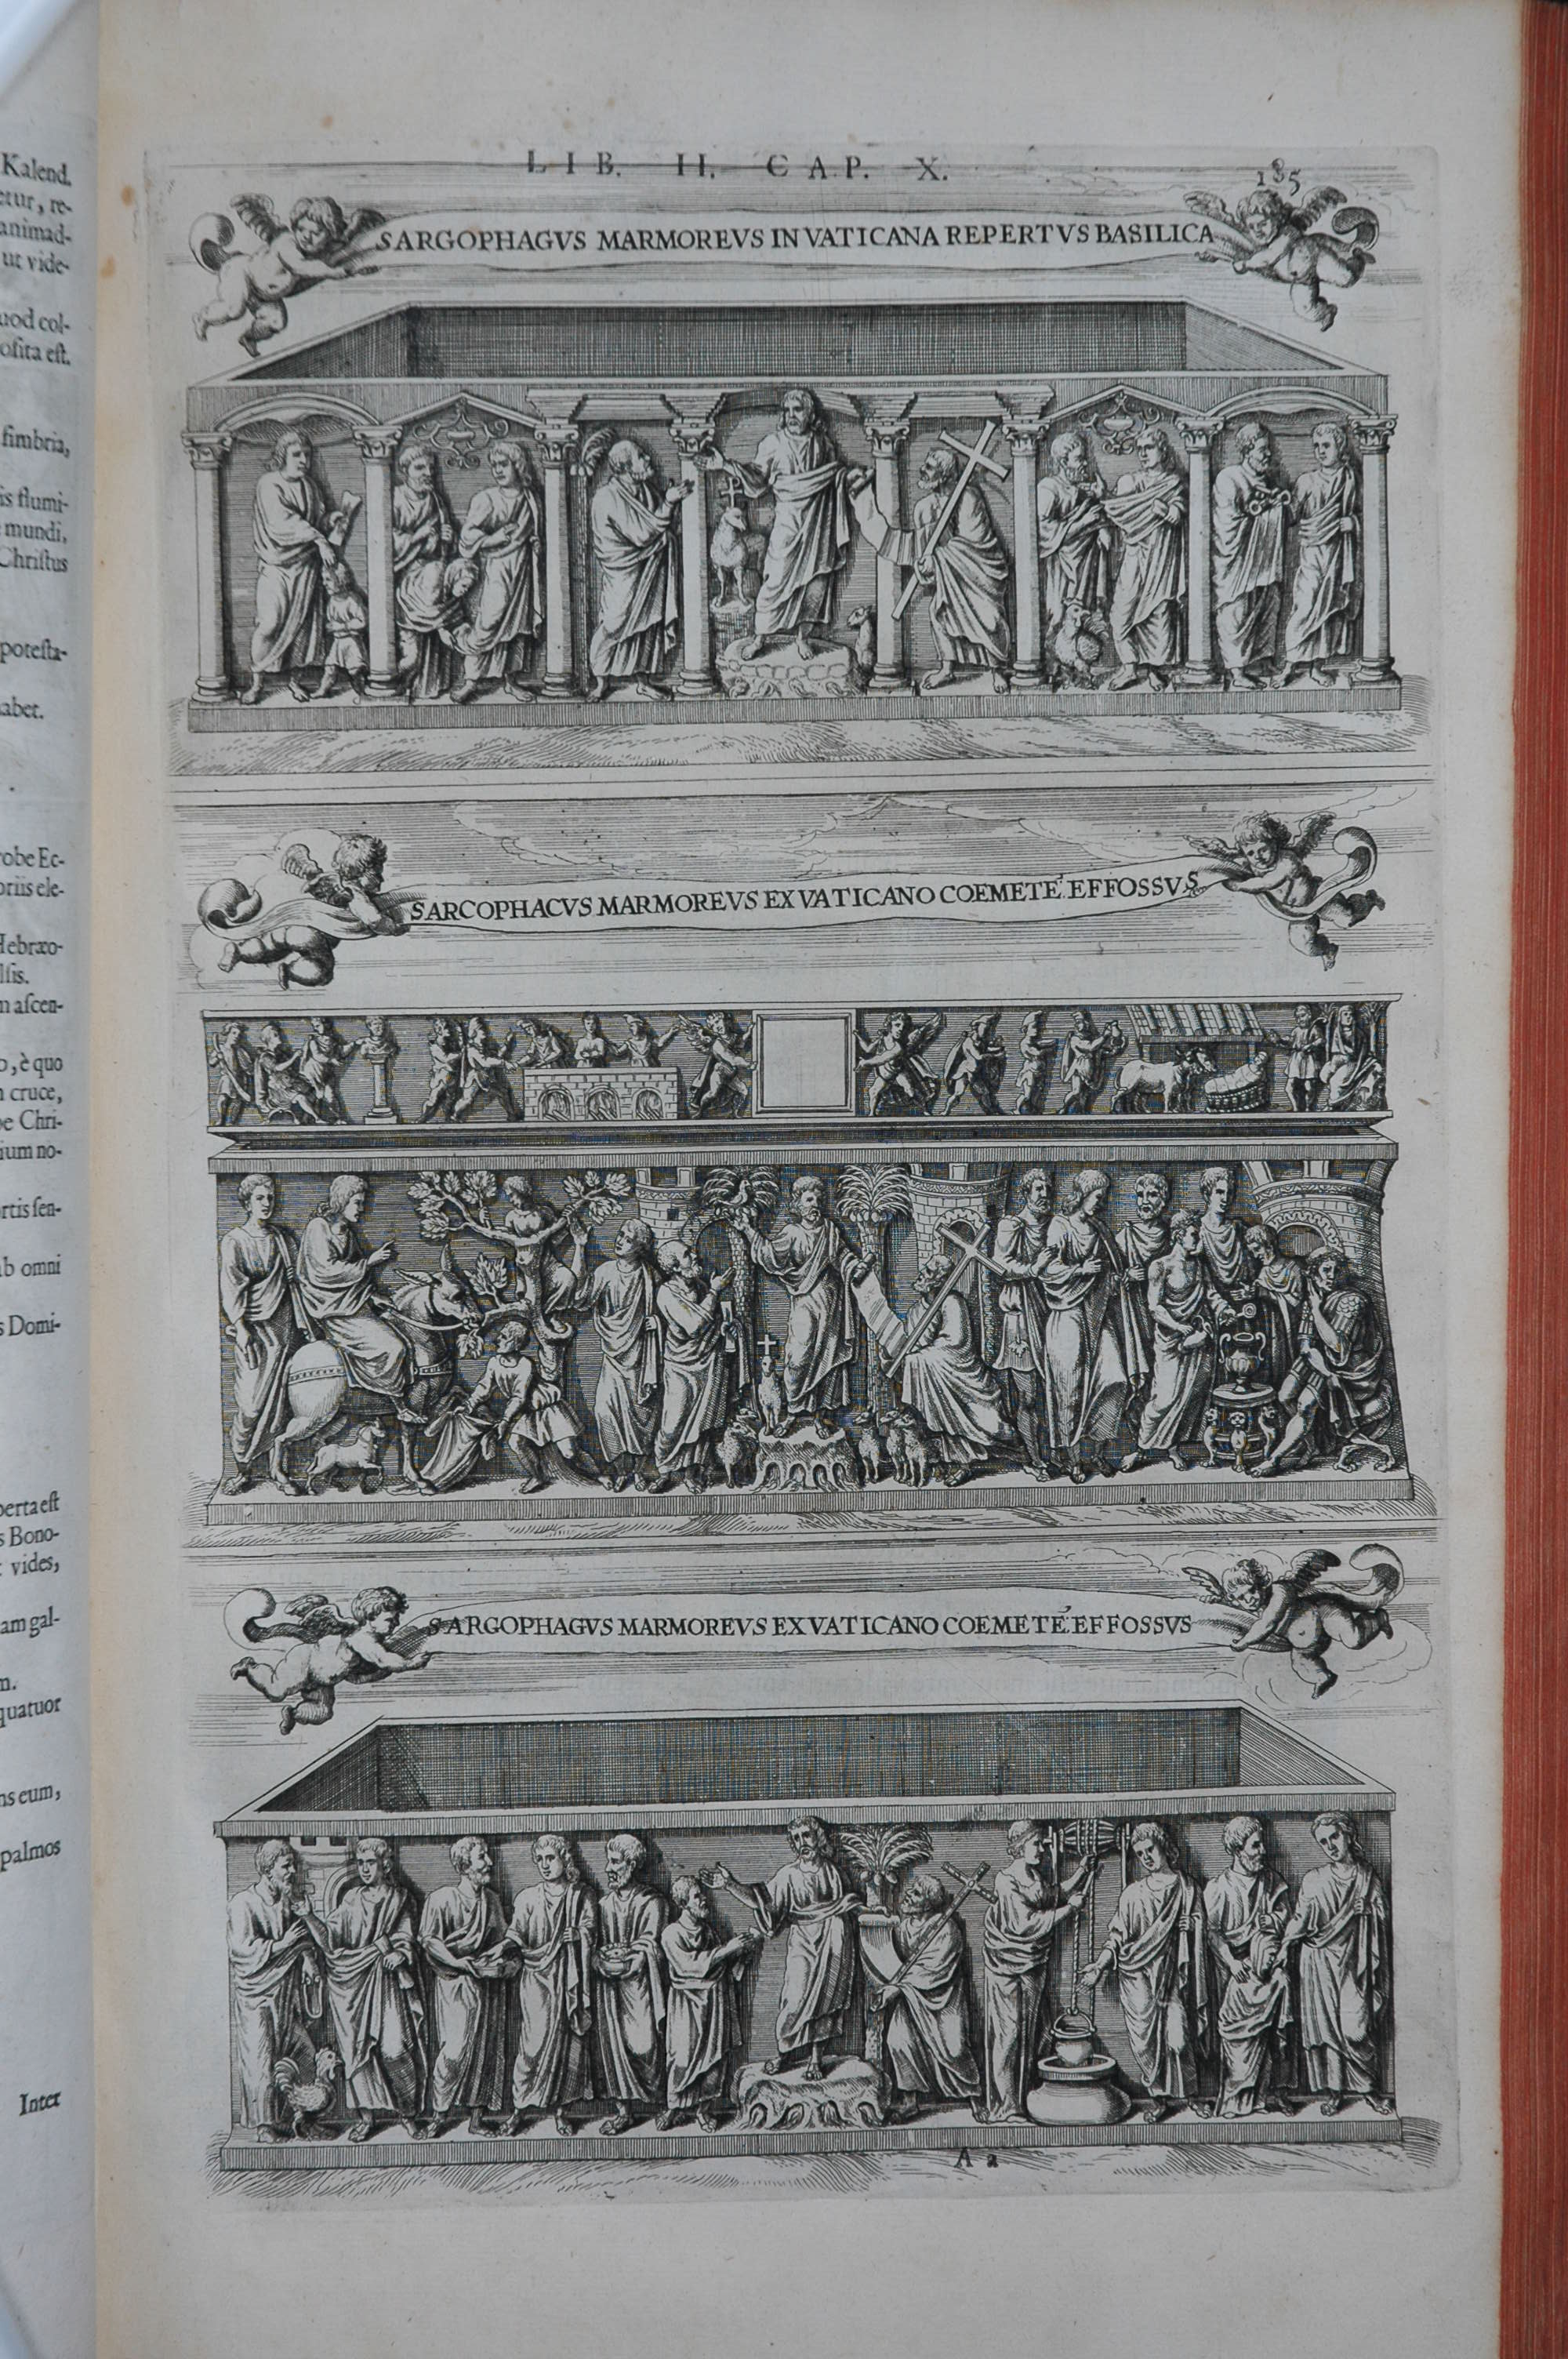 Kalend.
etur, re-
animad-
ut vide-
uod col-
osita est.
fimbria,
is flumi-
mundi,
Christus
potesta-
abet.
robe Ec-
oriis ele-
Hebræo-
lsis.
m ascen-
o, è quo
cruce,
pe Chri-
ium no-
rtis sen-
ab omni
s Domi-
perta est
s Bono-
vides,
am gal-
m.
quatuor
ns eum,
palmos
Inter
LIB. II. CAP. X. 185
SARGOPHAGVS MARMOREVS IN VATICANA REPERTVS BASILICA
SARCOPHACVS MARMOREVS EX VATICANO COEMETE: EFFOSSVS
SARGOPHAGVS MARMOREVS EX VATICANO COEMETE: EFFOSSVS
A a